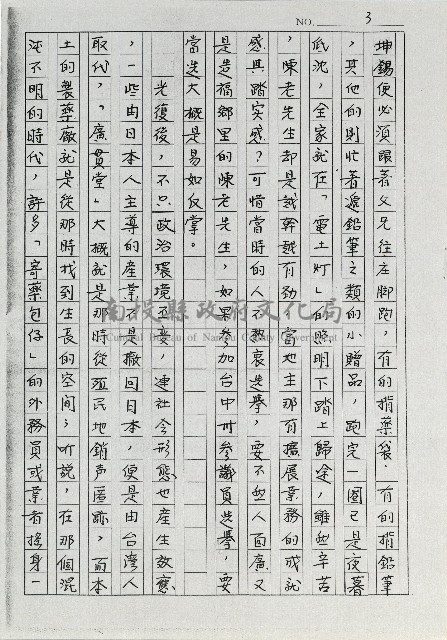 NO. 3
坤錫便必須跟著父兄往左腳跑，有的揹藥袋，有的揹鉛筆
，其他的則忙著遞鉛筆之類的小贈品，跑完一圈已是夜暮
低沈，全家就在「電土灯」的照明下踏上歸途，雖些辛苦
，陳老先生却是越幹越有劲，當地主那有擴展業務的成就
感與踏实感？可惜當時的人不熱衷选舉，要不些人面廣又
是造福鄉里的陳老先生，如果參加台中州參議員选擧，要
當选大概是易如反掌。
光復後，不只政治環境丕変，連社会形態也產生效應
，一些由日本人主導的產業不是撤回日本，便是由台灣人
取代，「廣貫堂」大概就是那時從殖民地銷声匿跡，而本
土的製藥廠就是從那時找到生長的空间；听說，在那個混
沌不明的時代，許多「寄藥包仔」的外務員或業者搖身一
南投縣政府文化局
Cultural Bureau of Nantou County Government